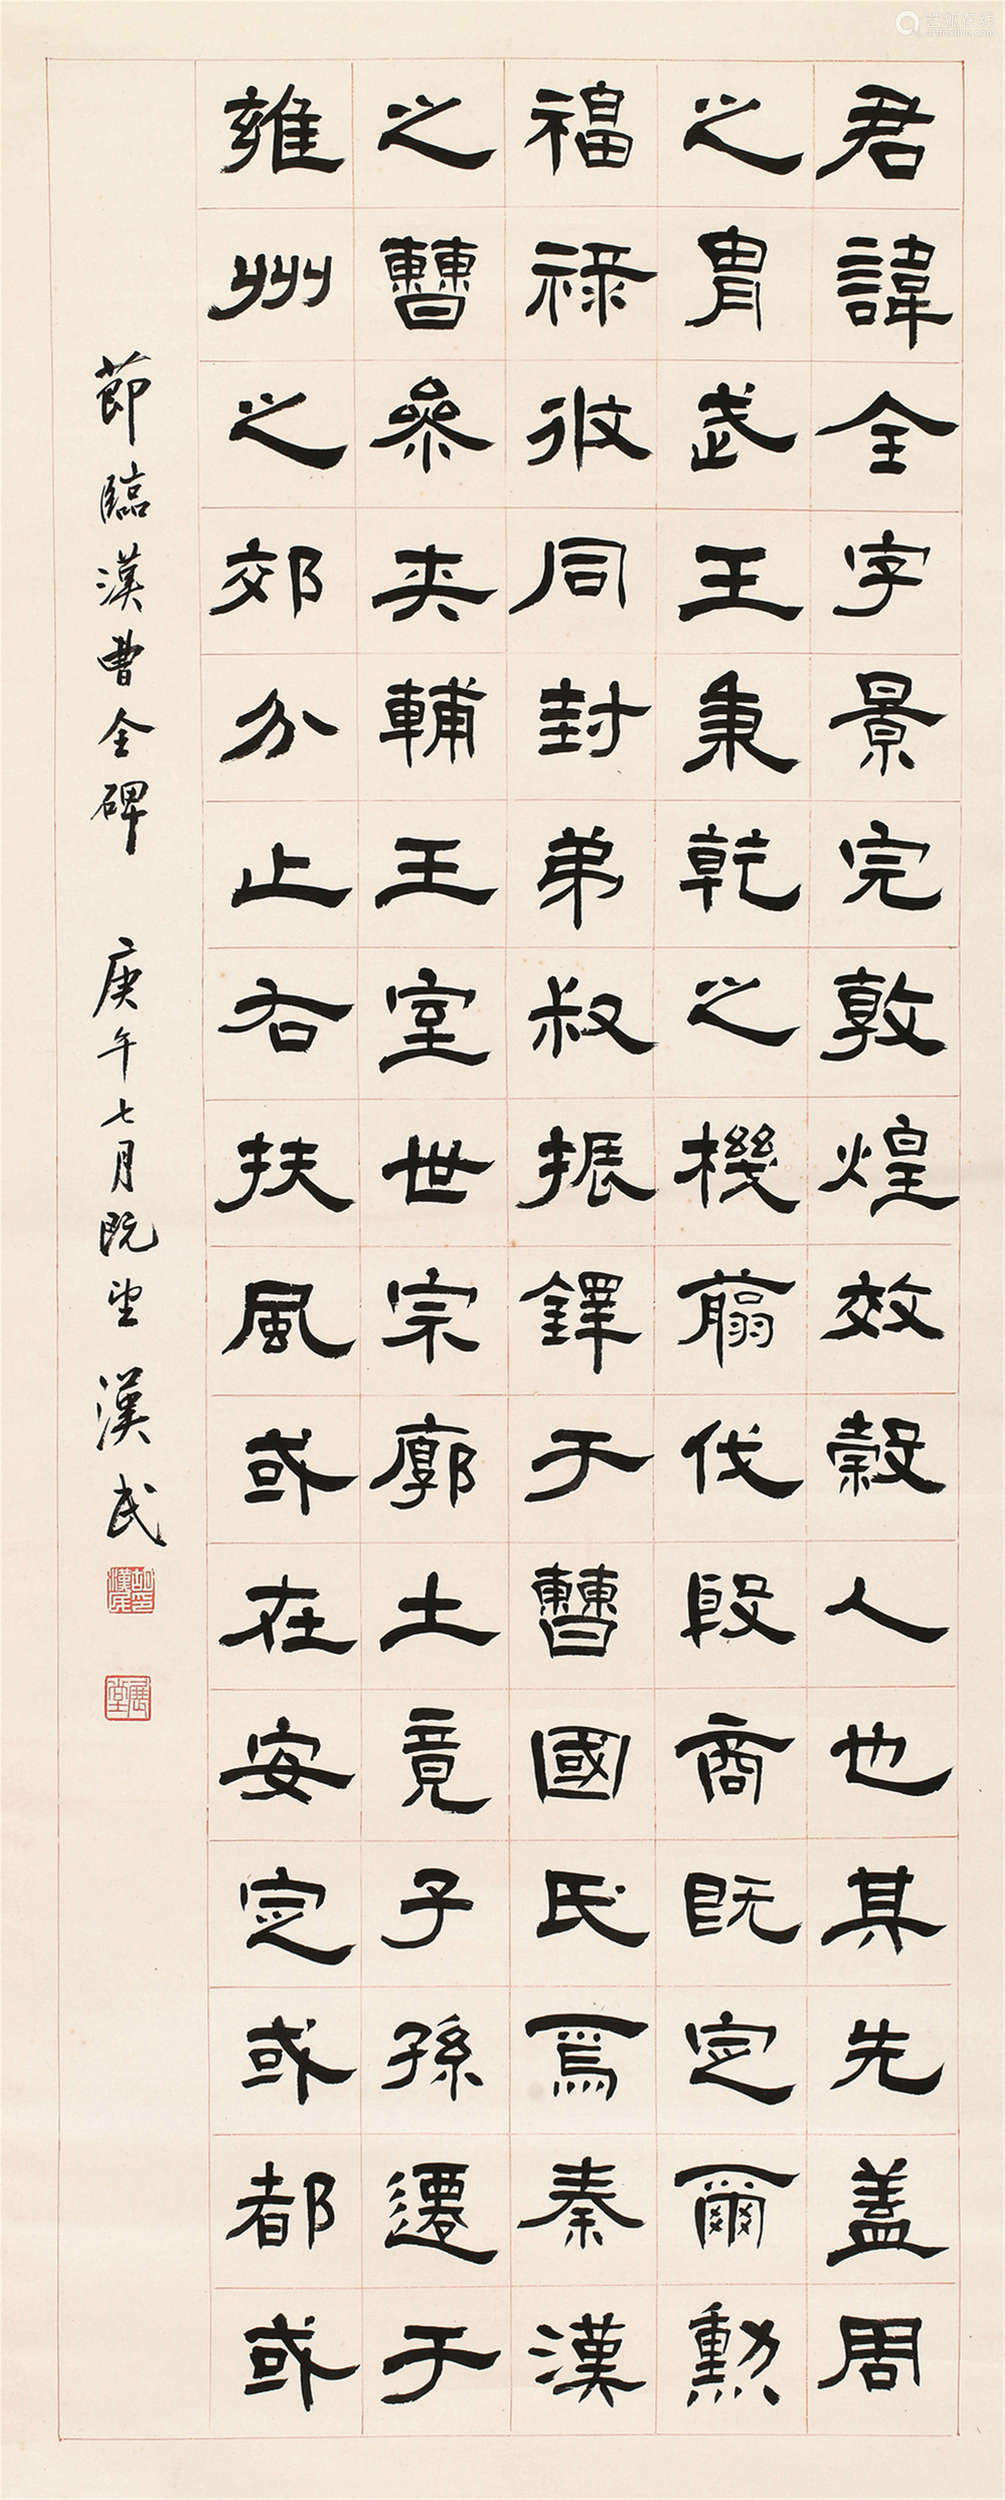 君諱全字景完敦煌效穀人也其先蓋周
之胄武王秉乾之機翦伐殷商既定爾勳
福祿攸同封弟叔振鐸于曹國氏焉秦漢
之曹參夾輔王室世宗廓土竟子孫遷于
雍州之郊分止右扶風或在安定或都或
節臨漢曹全碑 庚午七月既望 漢民
展堂